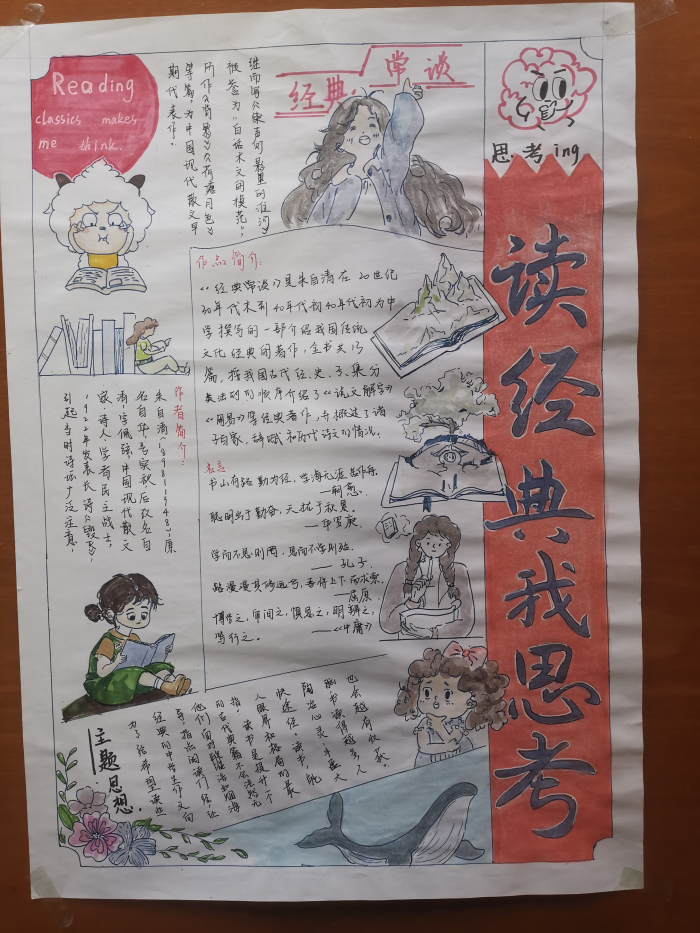 Reading
classics makes
me think.
继而写《桨声灯影里的秦淮河》
被誉为"白话术文的模范",
所作《背影》《荷塘月色》
等篇,为中国现代散文早
期代表作。
经典常谈
思考ing
读经典我思考
作品简介:
《经典常谈》是朱自清在20世纪
30年代末到40年代初为中
学撰写的一部介绍我国传统
文化经典的著作,全书共13
篇,按我国古代经、史、子、集分
类法的顺序介绍了《说文解字》
《周易》等经典著作,并概述了诸
子百家,辞赋和历代诗文的情况。
作者简介:
朱自清(1898-1948),原
名自华,号实秋,后改名自
清,字佩弦,中国现代散文
家、诗人、学者、民主战士,
1922年发表长诗《毁灭》,
引起当时诗坛广泛注意,
名言:
书山有路勤为径,学海无涯苦作舟。
——韩愈
聪明出于勤奋,天才在于积累。
——华罗庚
学而不思则罔,思而不学则殆。
——孔子
路漫漫其修远兮,吾将上下而求索。
——屈原
博学之,审问之,慎思之,明辨之,
笃行之。
——《中庸》
主题思想:
为了给希望读些
经典的中学生作文向
导,指点阅读门径,让
他们面对 和烟海
的古代典籍不会茫然无
指,读书是提升一个
人眼界和格局的最
快途径。读书,能
陶冶心灵,丰盈大
脑,书读得越多,人
也会越有收获。